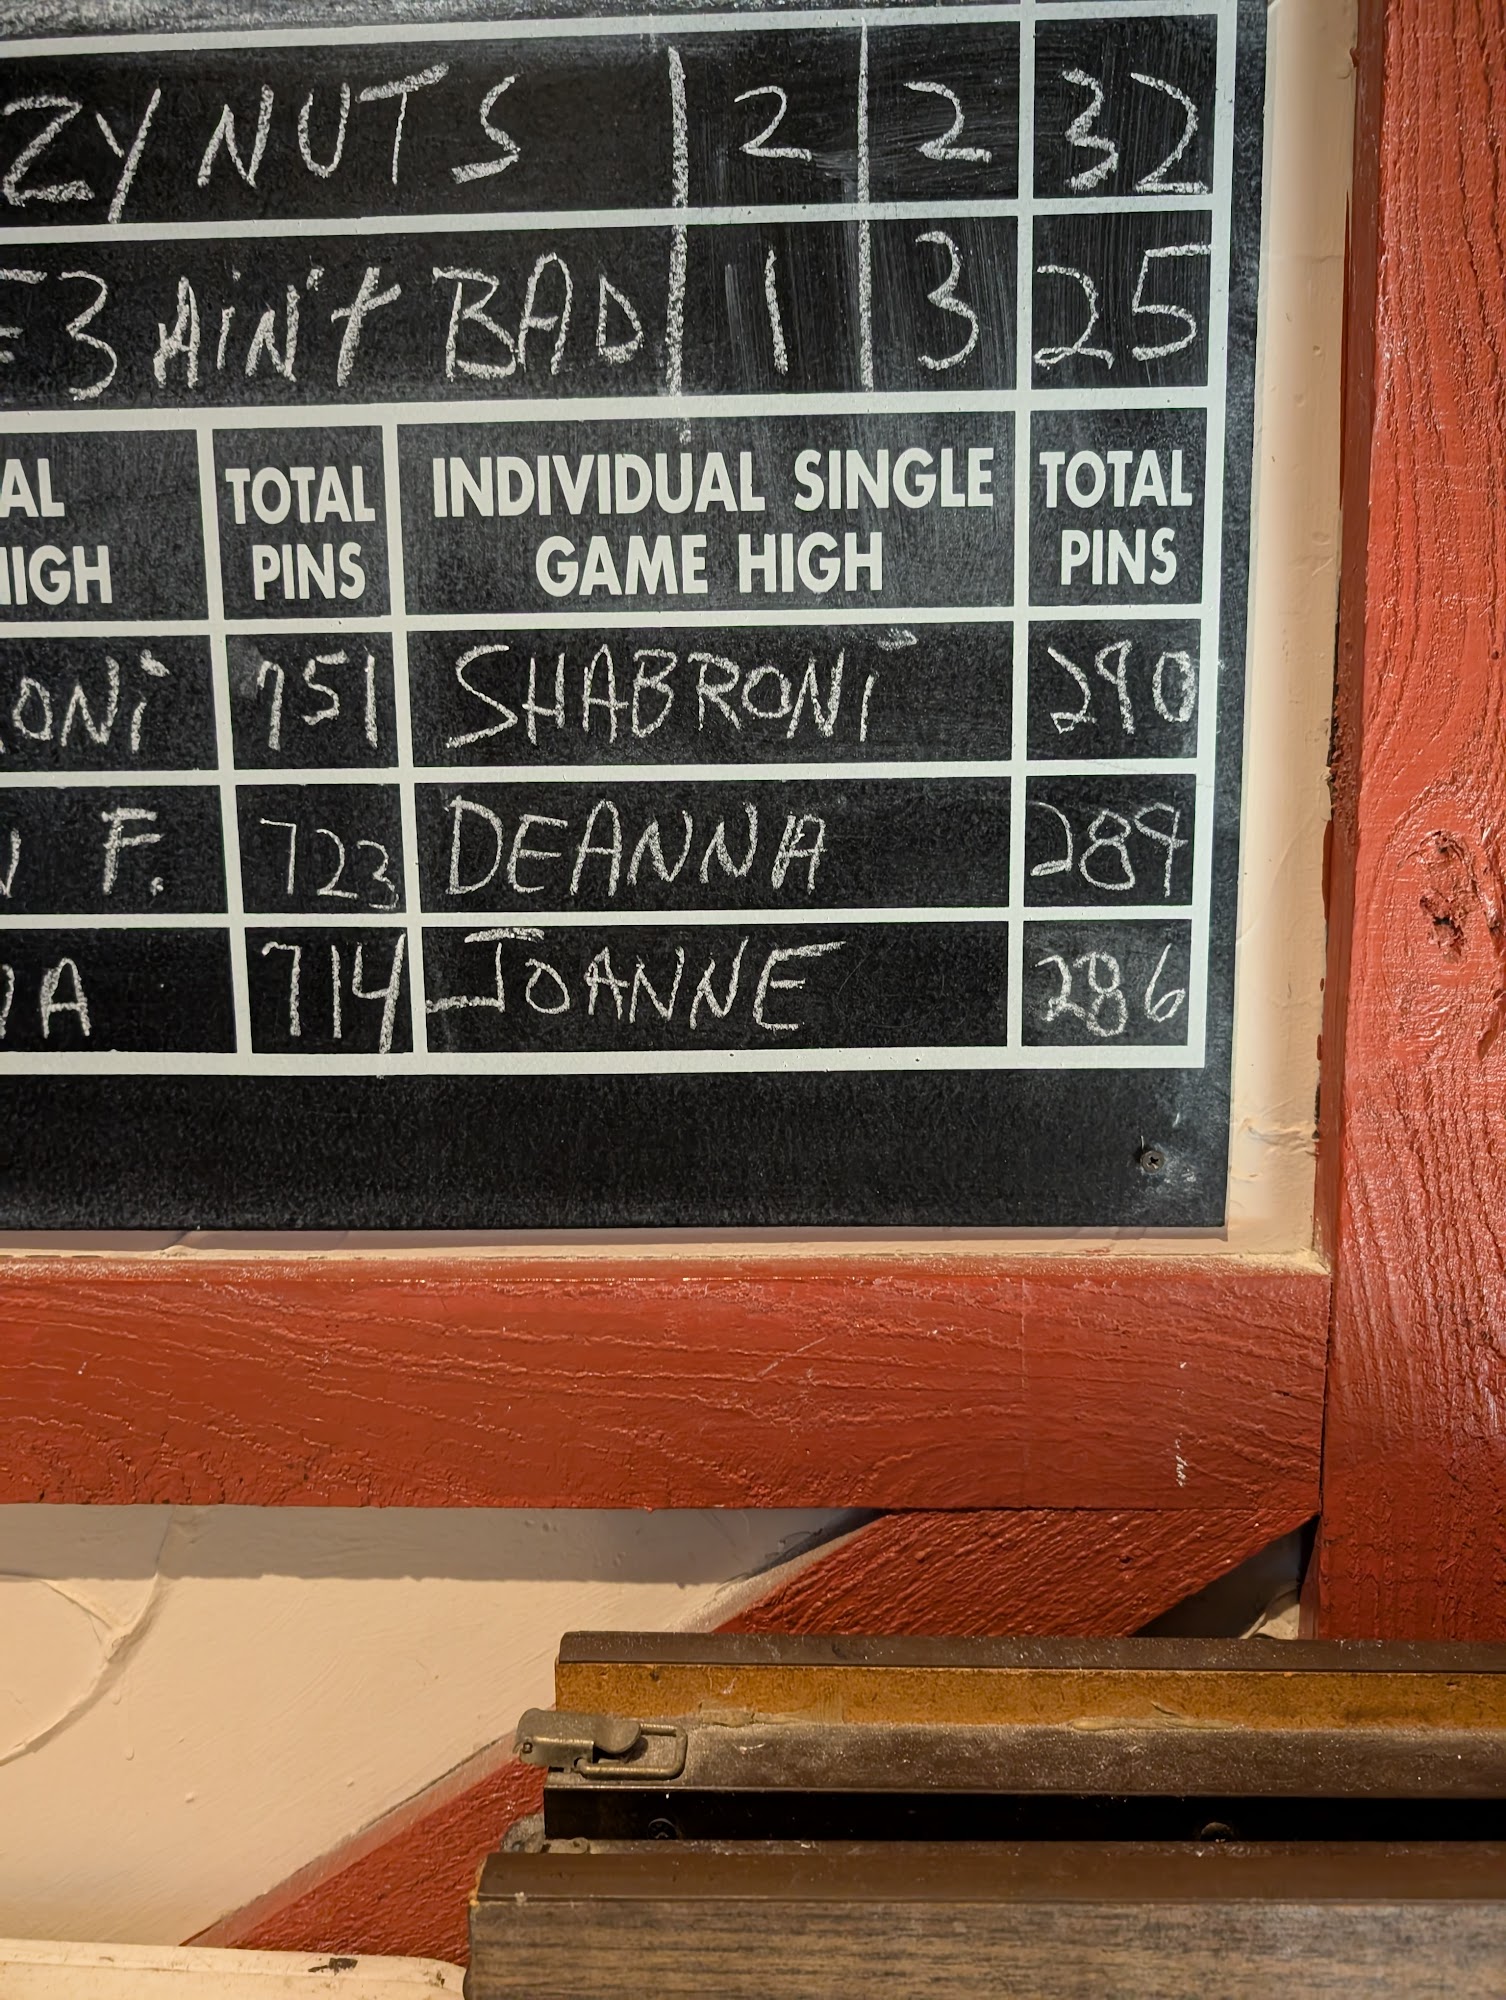 ZY NUTS 2 2 32
E 3 AiN't BAD 1 3 25
AL TOTAL INDIVIDUAL SINGLE TOTAL
HIGH PINS GAME HIGH PINS
RONi 751 SHABRONi 290
N F. 723 DEANNA 289
NA 714 JOANNE 286